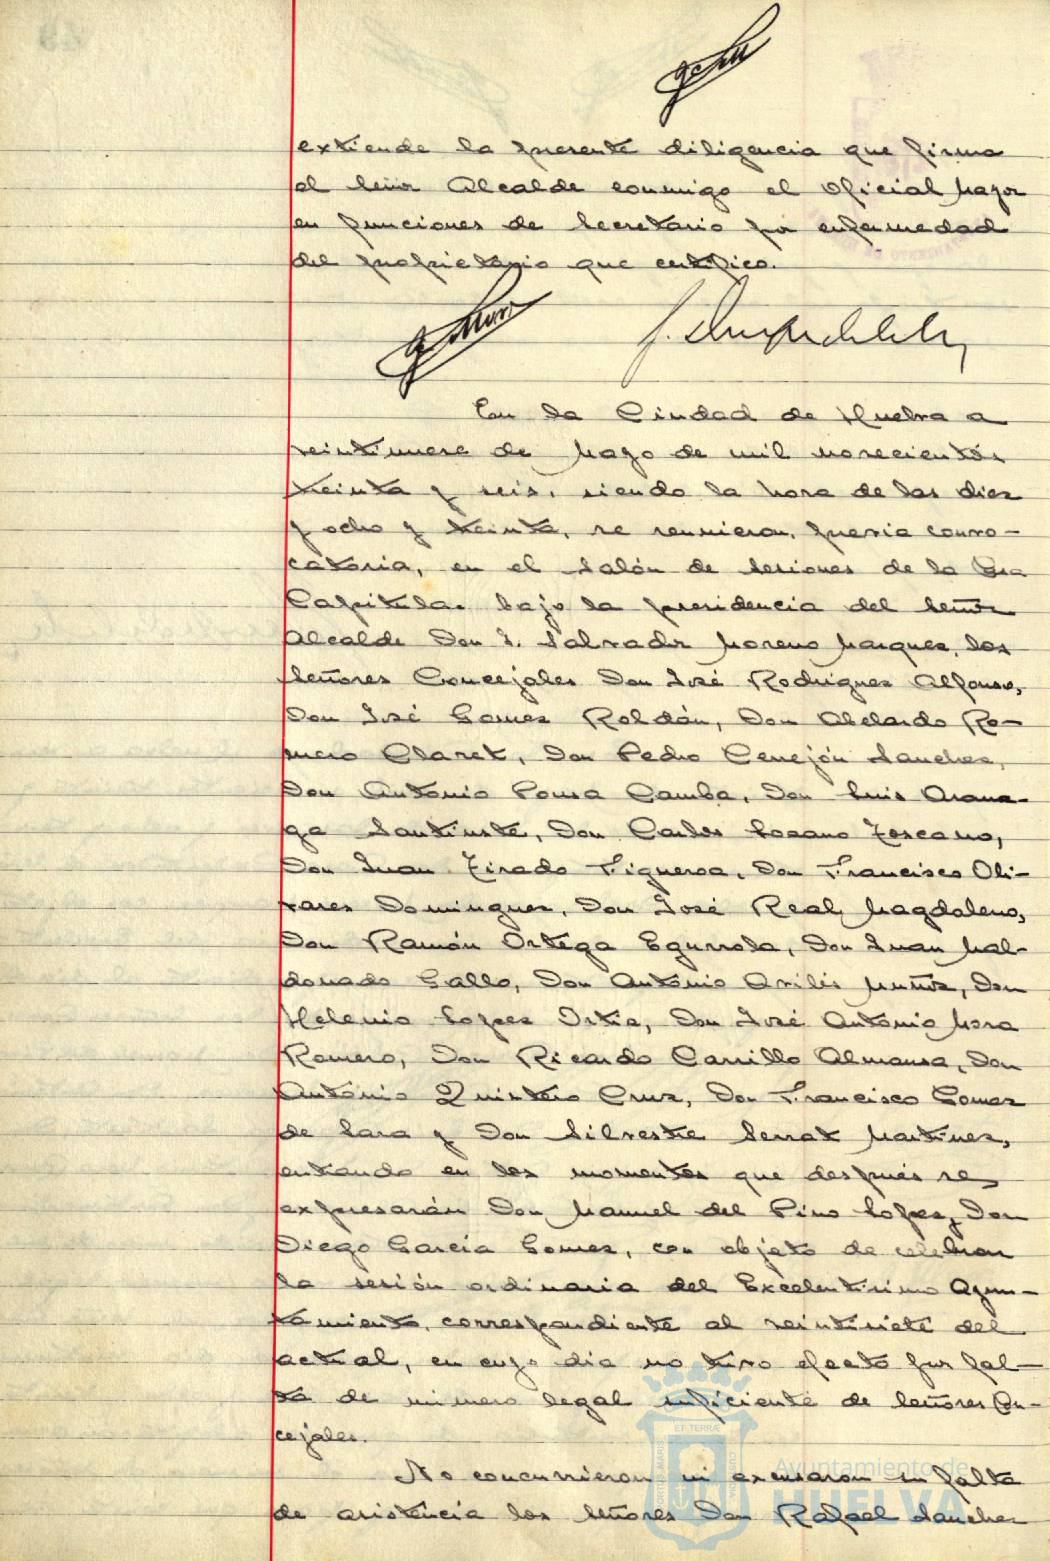 extiende la presente diligencia que firma
el Señor Alcalde conmigo el Oficial Mayor
en funciones de Secretario por enfermedad
del propietario que certifico.
En la Ciudad de Huelva a
veintinueve de Mayo de mil novecientos
treinta y seis, siendo la hora de las diez
y ocho y treinta, se reunieron, previa convo-
catoria, en el Salón de Sesiones de la Casa
Capitular bajo la presidencia del Señor
Alcalde Don Salvador Moreno Marquez, los
Señores Concejales Don José Rodriguez Alfonso,
Don José Gomez Roldán, Don Abelardo Ro-
mero Claret, Don Pedro Cerrejón Sanchez,
Don Antonio Pousa Camba, Don Luis Arana-
ga Don Carlos Lozano Toscano,
Don Juan Tirado Figueroa, Don Francisco Oli-
vares Dominguez, Don José Real Magdaleno,
Don Ramón Ortega Egurrola, Don Juan Mal-
donado Gallo, Don Antonio Avilés Muñoz, Don
Helenio Lopez Ortiz, Don José Antonio Mora
Romero, Don Ricardo Carrillo Almansa, Don
Antonio Quintero Cruz, Don Francisco Gomez
de Lara y Don Silvestre Serrat Martinez,
entrando en los momentos que después se
expresarán Don Manuel del Pino Lopez, Don
Diego Garcia Gomez, con objeto de celebrar
la sesión ordinaria del Excelentisimo Ayun-
tamiento, correspondiente al veintisiete del
actual, en cuyo dia no tuvo efecto por fal-
ta de número legal suficiente de Señores Con-
cejales.
No concurrieron ni excusaron su falta
de asistencia los Señores Don Rafael Sanchez
Ayuntamiento de
HUELVA